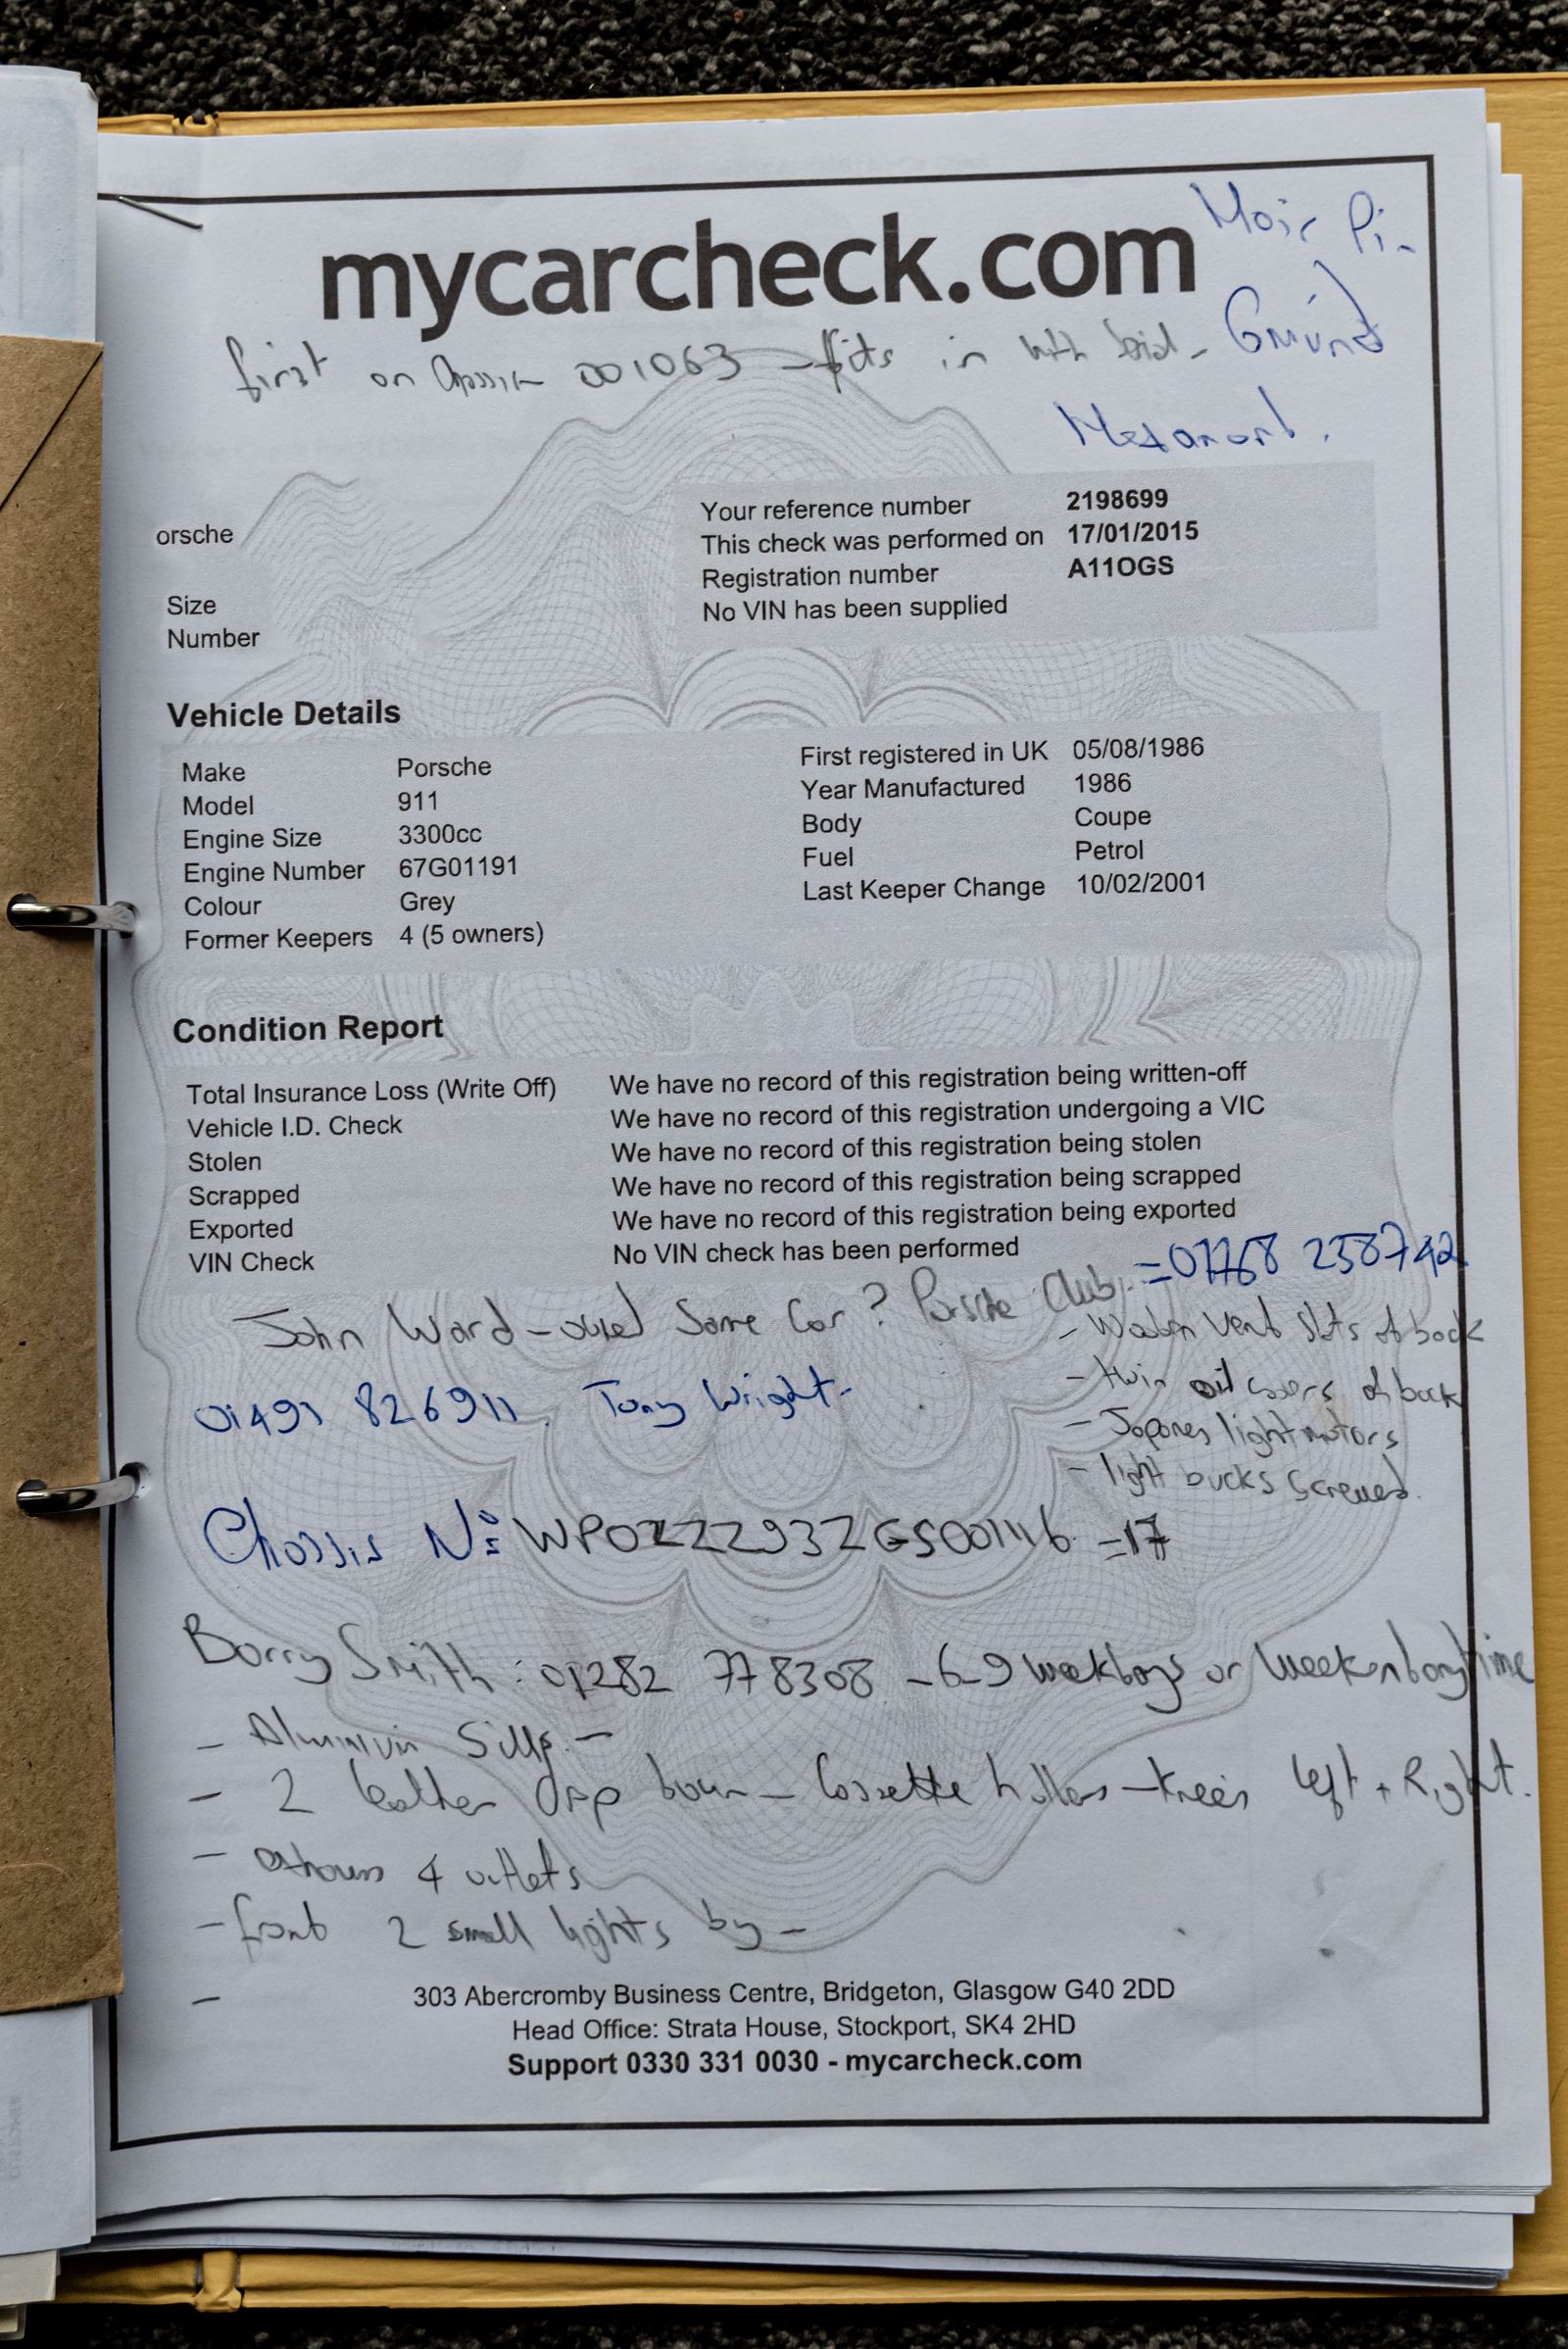 mycarcheck.com
first on 001063 - fits in with - Gmünd
orsche
Size
Number
Your reference number 2198699
This check was performed on 17/01/2015
Registration number A11OGS
No VIN has been supplied
Vehicle Details
Make Porsche
Model 911
Engine Size 3300cc
Engine Number 67G01191
Colour Grey
Former Keepers 4 (5 owners)
First registered in UK 05/08/1986
Year Manufactured 1986
Body Coupe
Fuel Petrol
Last Keeper Change 10/02/2001
Condition Report
Total Insurance Loss (Write Off) We have no record of this registration being written-off
Vehicle I.D. Check We have no record of this registration undergoing a VIC
Stolen We have no record of this registration being stolen
Scrapped We have no record of this registration being scrapped
Exported We have no record of this registration being exported
VIN Check No VIN check has been performed
John Ward - owned Same Car? Porsche Club. = 07768 258742
- vent slots at back
01491 826911. Tony Wright-
- twin oil coolers at back
- light motors
- light bucks screwed.
Chassis No: WP0ZZZ93ZGS001116 = 17
Barry Smith: 01282 778308 - 6-9 weekdays or weekend anytime
- Aluminium Sills -
- 2 leather drop down - Cassette holders - knees left + Right.
- 4 outlets
- front 2 small lights by -
-
303 Abercromby Business Centre, Bridgeton, Glasgow G40 2DD
Head Office: Strata House, Stockport, SK4 2HD
Support 0330 331 0030 - mycarcheck.com